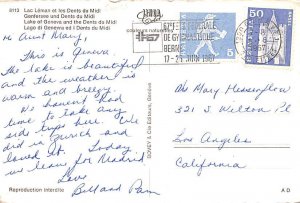 8113 Lac Léman et les Dents du Midi
Genfersee und Dents du Midi
Lake of Geneva and the Dents du Midi
Lago di Ginevra ed i Dents du Midi
Hi Aunt Mary,
This is Geneva
The lake is beautiful
and the weather is
warm and breezy.
We haven't had
time to take any
side trips here. We
did in Zurich and
loved it. Today
we leave for Madrid
Love
Bill and Pam
Reproduction interdite
couleurs naturelles
DE GYMNASTIQUE
BERNE
JUIN 1967
5
HELVETIA
50
The Mary
321 S Wilton Pl
Los Angeles
California
A D